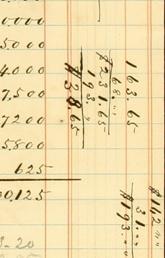 0,000
5.000
4.000
7,500
7200
5800
625
0,125
163.65
68.〃
$231.65
193.〃
$38.65
$162〃〃
31.〃
$193.〃